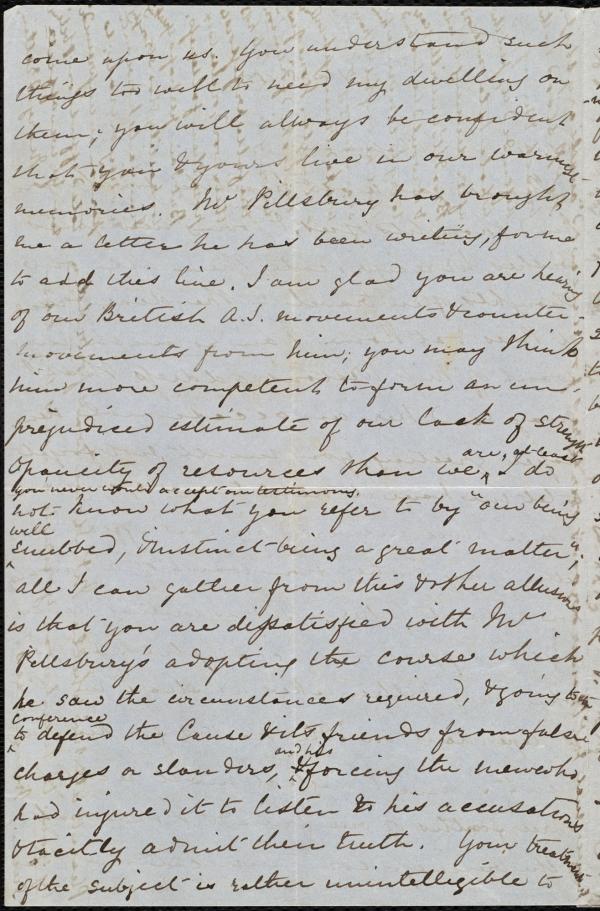 come upon us. You understand such
things too well to need my dwelling on
them; you will always be confident
that you & yours live in our warmest
memories. Mr Pillsbury has brought
me a letter he has been writing, for me
to add this line. I am glad you are hearing
of our British A.S. movements & counter
movements from him; you may think
him more competent to form an un
prejudiced estimate of our lack of strength
opacity of resources than we are, at least
you never would accept our testimony. I do
not know what you refer to by "our being
well snubbed, & instinct being a great matter",
all I can gather from this & other allusions
is that you are dissatisfied with Mr
Pillsbury's adopting the course which
he saw the circumstances required, & going to the
conference
to defend the Cause & its friends from false
charges or slanders, and his forcing the men who
had injured it to listen to his accusations
& tacitly admit their truth. Your treatment
of the subject is rather unintelligible to